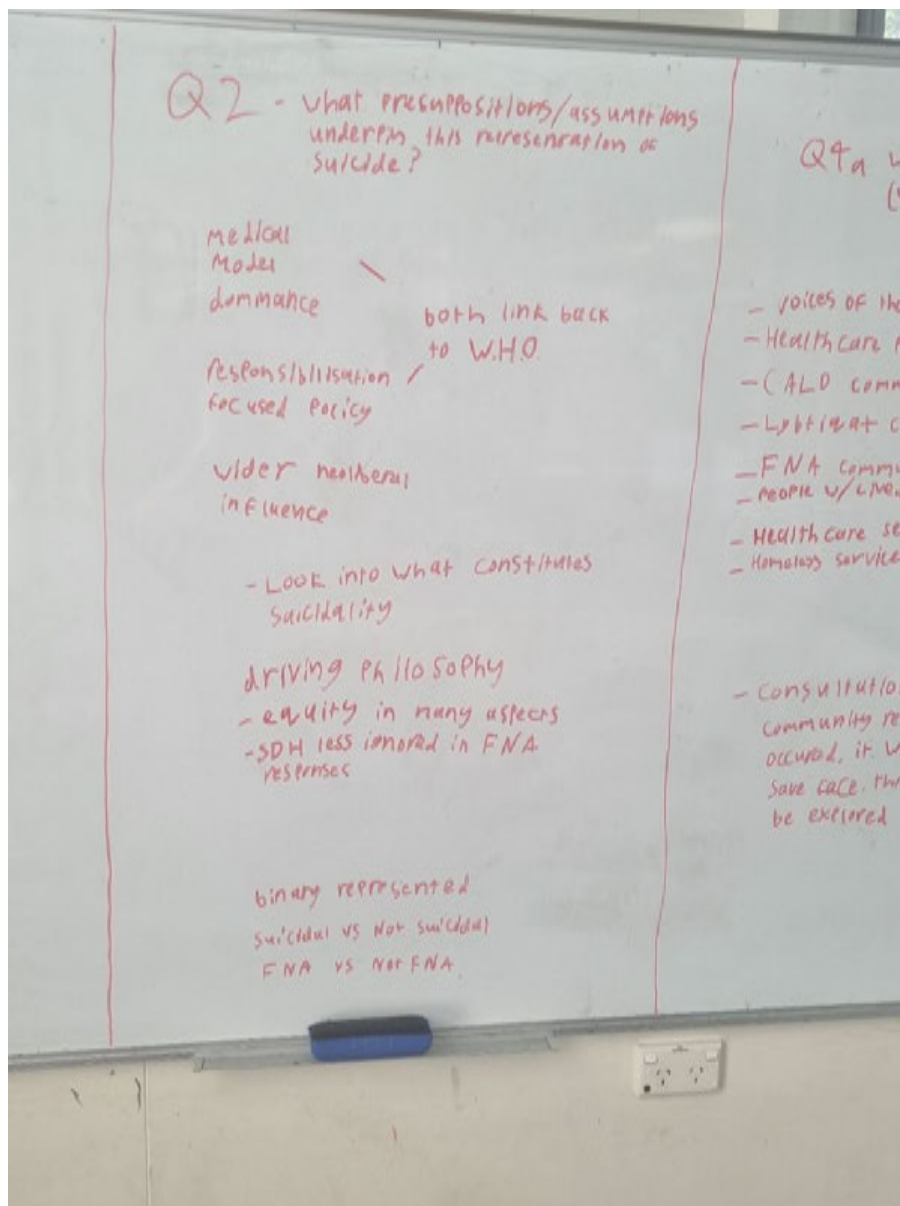 Q2 - what presuppositions/assumptions
underpin this representation of
suicide?
medical
model
dominance
both link back
to W.H.O.
responsiblisation
focused policy
wider neoliberal
influence
- Look into what constitutes
suicidality
driving philosophy
- equity in many aspects
- SDH less ignored in FNA
responses
binary represented
suicidal vs Not suicidal
FNA vs Not FNA
Q4a
- voices of
- Healthcare
- CALD
- Lgbtiqa+
- FNA
- people w/
- Healthcare
- Homeless service
- consultatio
community re
occured, it
save face.
be explored